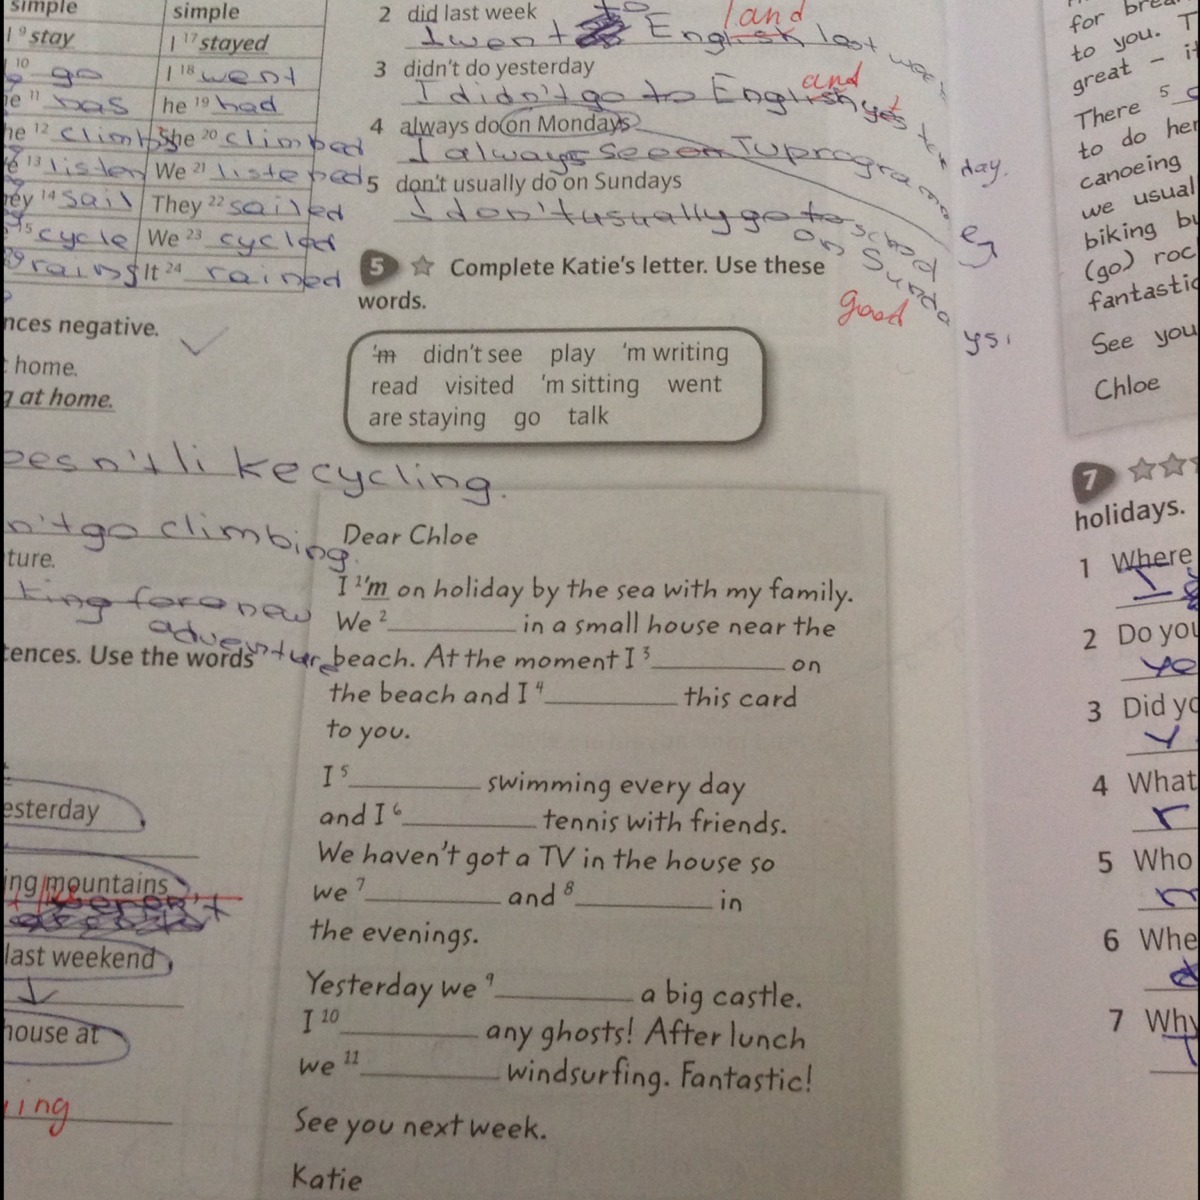 simple simple
stay I 17 stayed
10 go I 18 went
11 has he 19 had
he 12 climbs She 20 climbed
13 listen We 21 listened
14 sail They 22 sailed
15 cycle We 23 cycled
rains It 24 rained
nces negative.
home.
at home.
oesn't like cycling.
n't go climbing.
ture.
king for a new
adventure
tences. Use the words
esterday
ing mountains
last weekend
house at
ing
2 did last week
I went to English land last week
3 didn't do yesterday
I didn't go to English and yesterday.
4 always do on Mondays
I always see
5 don't usually do on Sundays
I don't usually go to school
on Sundays.
good
5 Complete Katie's letter. Use these
words.
'm didn't see play 'm writing
read visited 'm sitting went
are staying go talk
Dear Chloe
I 1'm on holiday by the sea with my family.
We 2__________ in a small house near the
beach. At the moment I 3__________ on
the beach and I 4__________ this card
to you.
I 5__________ swimming every day
and I 6__________ tennis with friends.
We haven't got a TV in the house so
we 7__________ and 8__________ in
the evenings.
Yesterday we 9__________ a big castle.
I 10__________ any ghosts! After lunch
we 11__________ windsurfing. Fantastic!
See you next week.
Katie
for brea
to you. T
great – i
There 5
to do her
canoeing
we usual
biking bu
(go) roc
fantastic
See you
Chloe
7
holidays.
1 Where
I
2 Do you
ye
3 Did yo
y
4 What
5 Who
6 Whe
7 Why